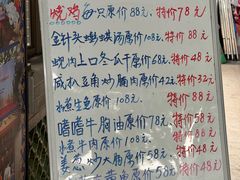 烧鸡每只原价88元,特价78元
金针头蝴蝶汤原价108元.特价88元
蚬肉上口冬瓜千原价58元,特价48元
咸松豆角炒腩肉原价42元,特价32元
水煮生鱼原价108元.特价88元
嗜嗜牛胸油原价78元.特价58元
水煮牛肉原价78元.特价58元
姜葱炒大肠原价58元.特价48元
黄鱼原价58元.特价48元